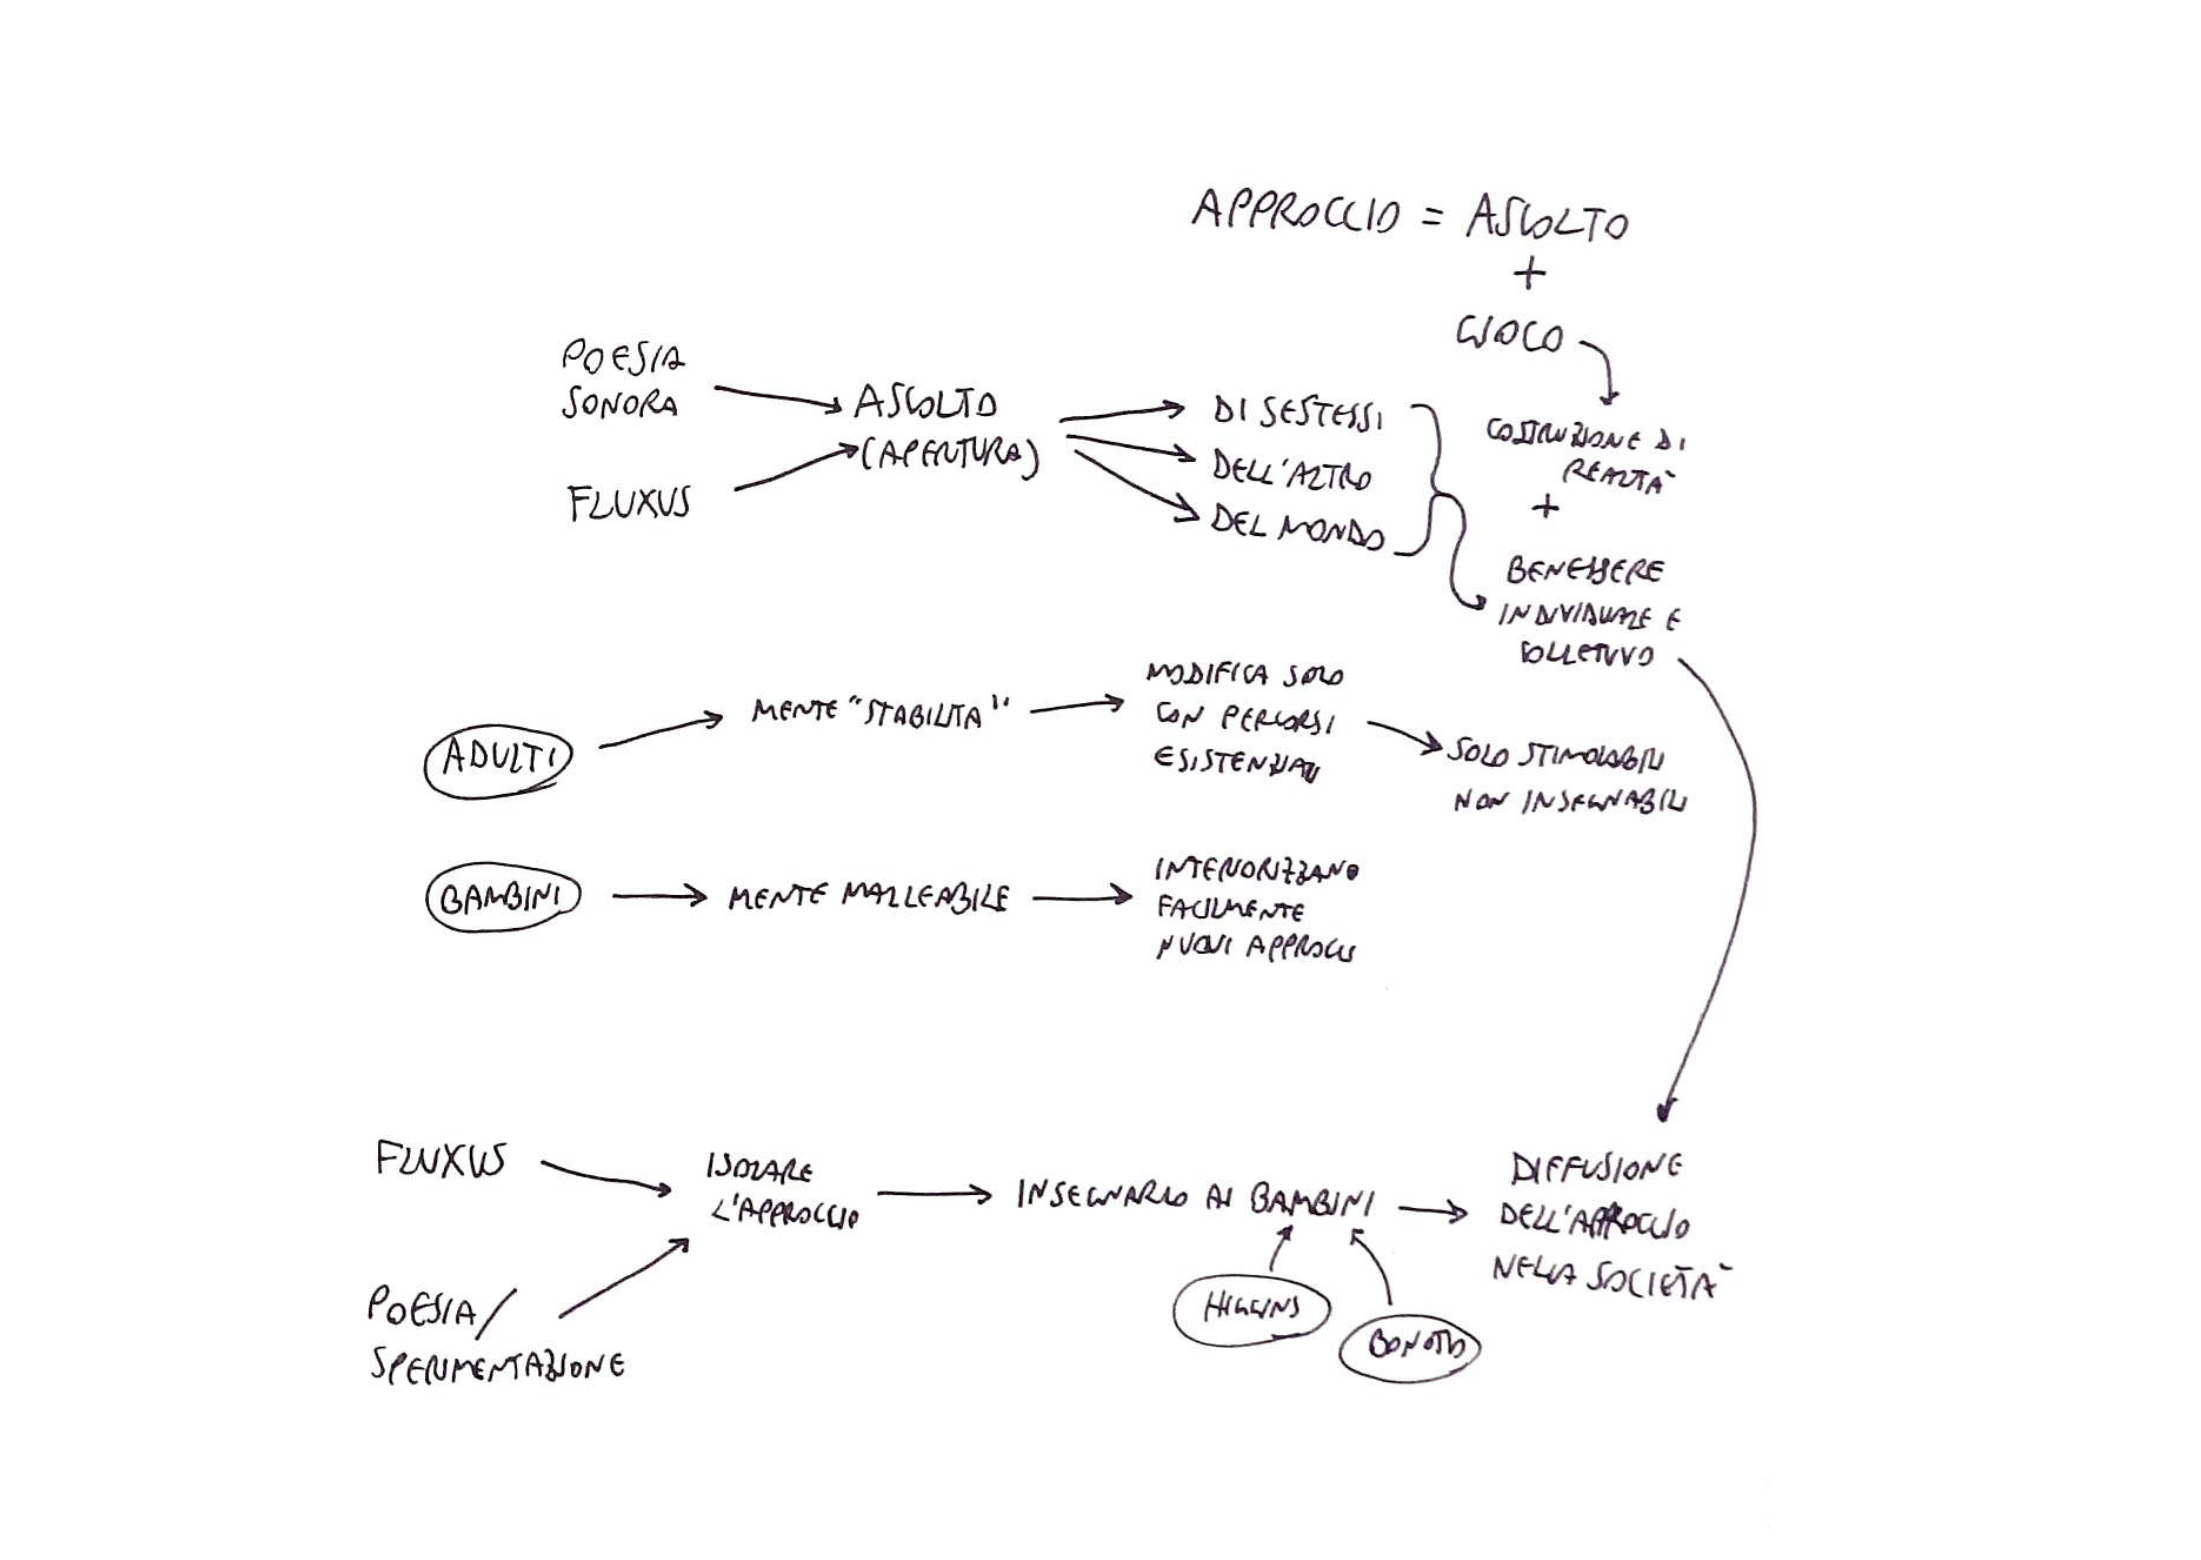 APPROCCIO = ASCOLTO
+
GIOCO
POESIA
SONORA
FLUXUS
ASCOLTO
(APERTURA)
DI SESTESSI
DELL'ALTRO
DEL MONDO
COSTRUZIONE DI
REALTÀ
+
BENESSERE
INDIVIDUALE E
COLLETTIVO
ADULTI
MENTE "STABILITA"
MODIFICA SOLO
CON PERCORSI
ESISTENZIALI
SOLO STIMOLABILI
NON INSEGNABILI
BAMBINI
MENTE MALLEABILE
INTERIORIZZANO
FACILMENTE
NUOVI APPROCCI
FLUXUS
POESIA/
SPERIMENTAZIONE
ISOLARE
L'APPROCCIO
INSEGNARLO AI BAMBINI
HIGGINS
BONOTTO
DIFFUSIONE
DELL'APPROCCIO
NELLA SOCIETÀ